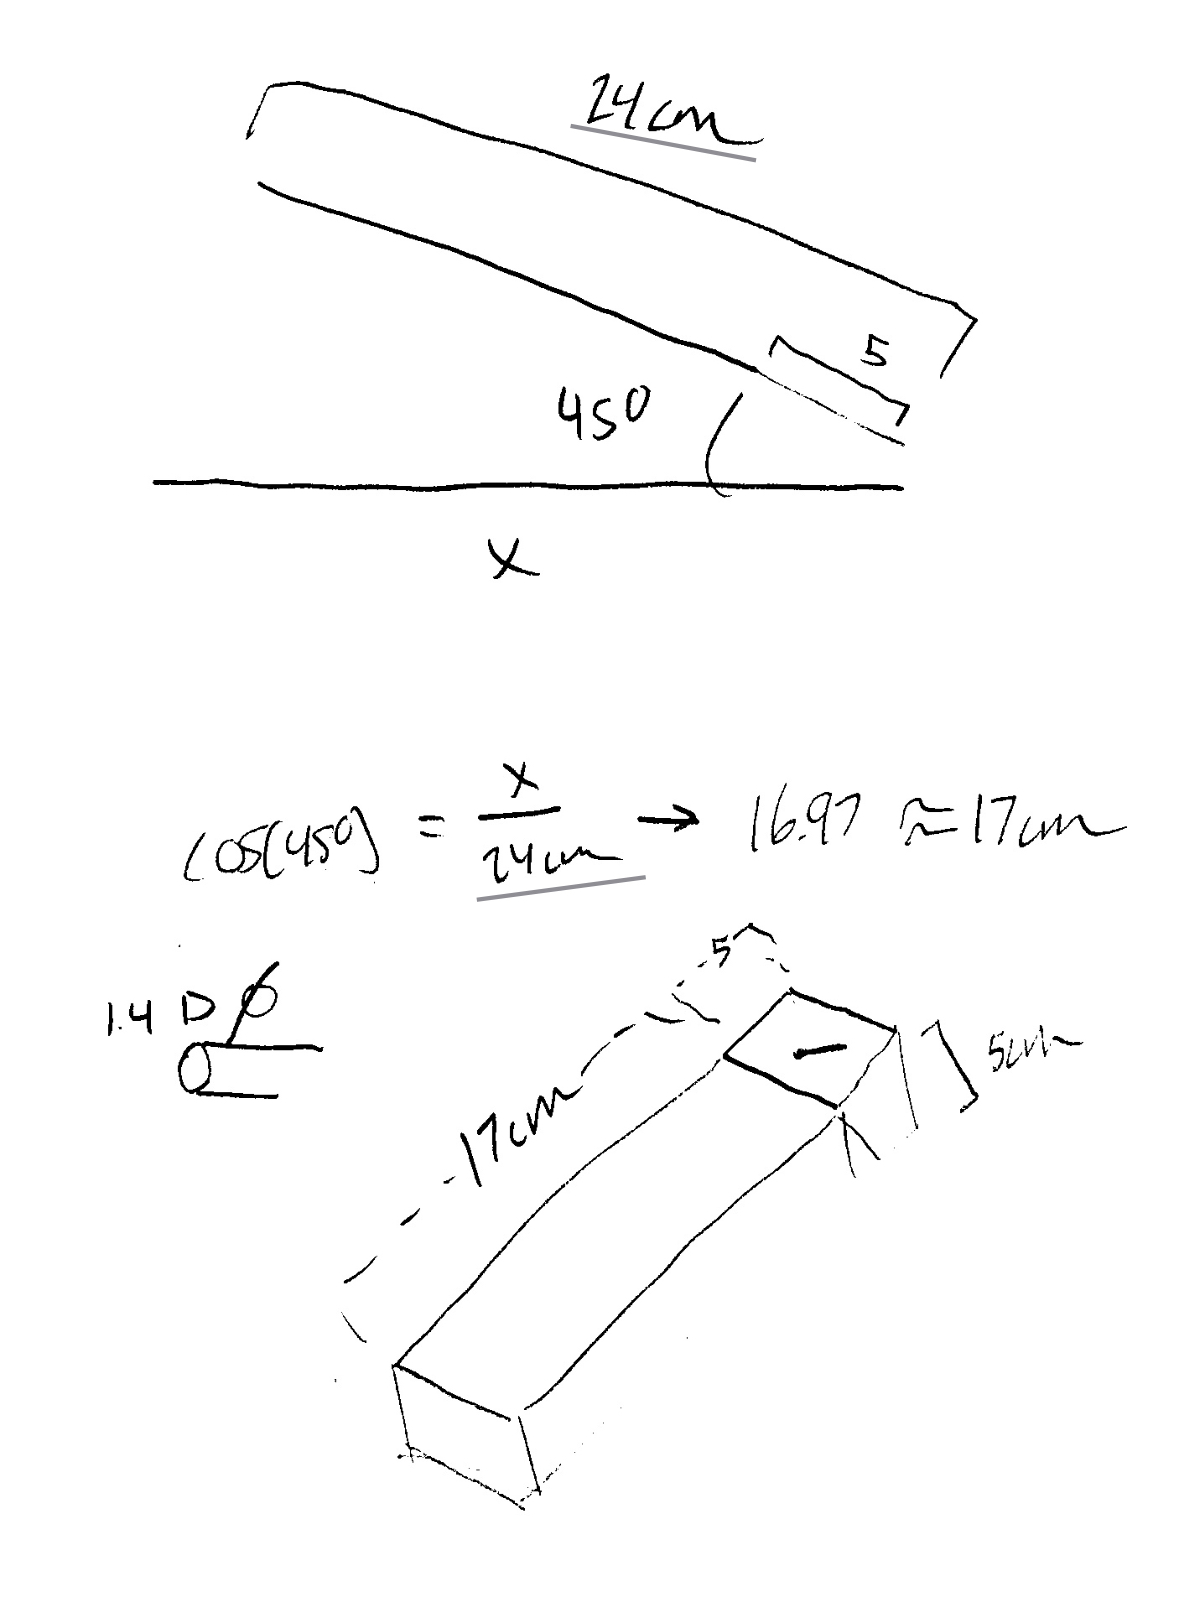 24cm
5
45°
x
cos(45°) = x/24cm → 16.97 ≈ 17cm
1.4 D
5
17cm
5cm